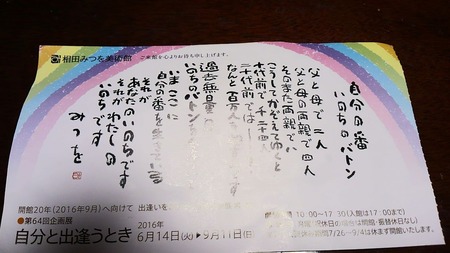 相田みつを美術館 ご来館を心よりお待ち申し上げます。
自分の番
いのちのバトン
父と母で二人
父と母の両親で四人
そのまた両親で八人
こうしてかぞえてゆくと
十代前で千二十四人
二十代前では―
なんと百万人
過去無量の
いのちのバトン
いまここに
自分の番を生きている
それが
あなたのいのちです
それがわたしの
いのちです
みつを
開館20年(2016年9月)へ向けて 出逢いを
●第64回企画展
自分と出逢うとき
2016年
6月14日(火)▶9月11日(日)
10:00〜17:30(入館は17:00まで)
月曜(祝休日の場合は開館・振替休日なし)
7/26〜9/4は休まず開館いたします。